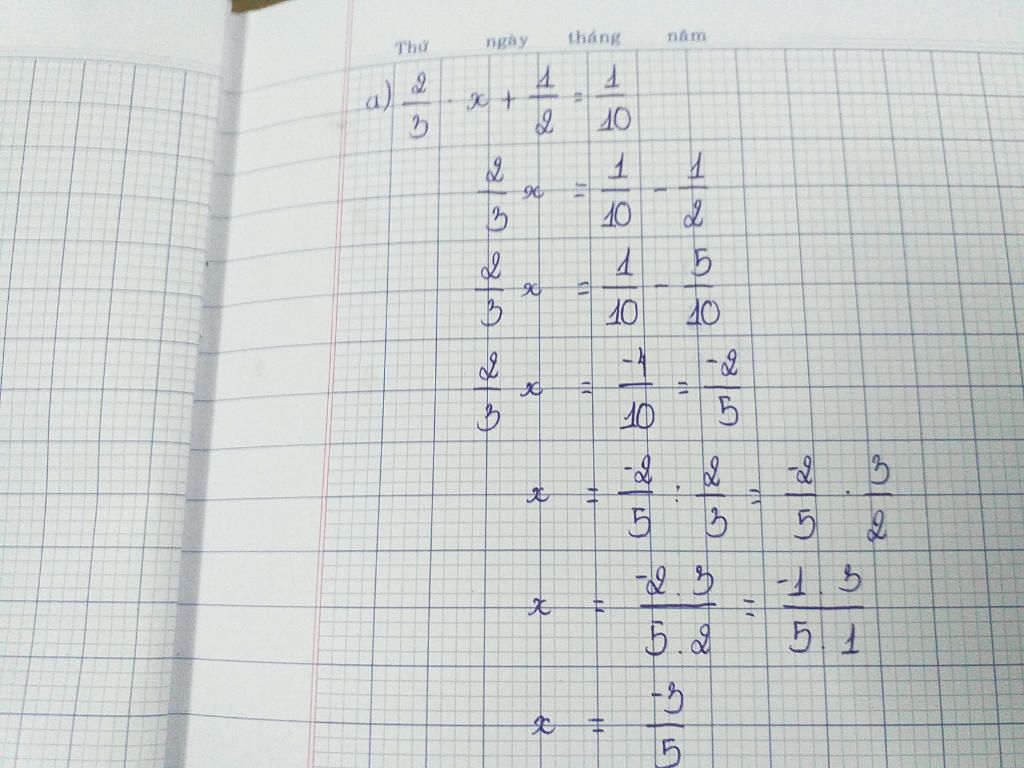 Thứ ngày tháng năm
a) 2/3 . x + 1/2 = 1/10
2/3 x = 1/10 - 1/2
2/3 x = 1/10 - 5/10
2/3 x = -4/10 = -2/5
x = -2/5 : 2/3 = -2/5 . 3/2
x = -2 . 3/5 . 2 = -1 . 3/5 . 1
x = -3/5